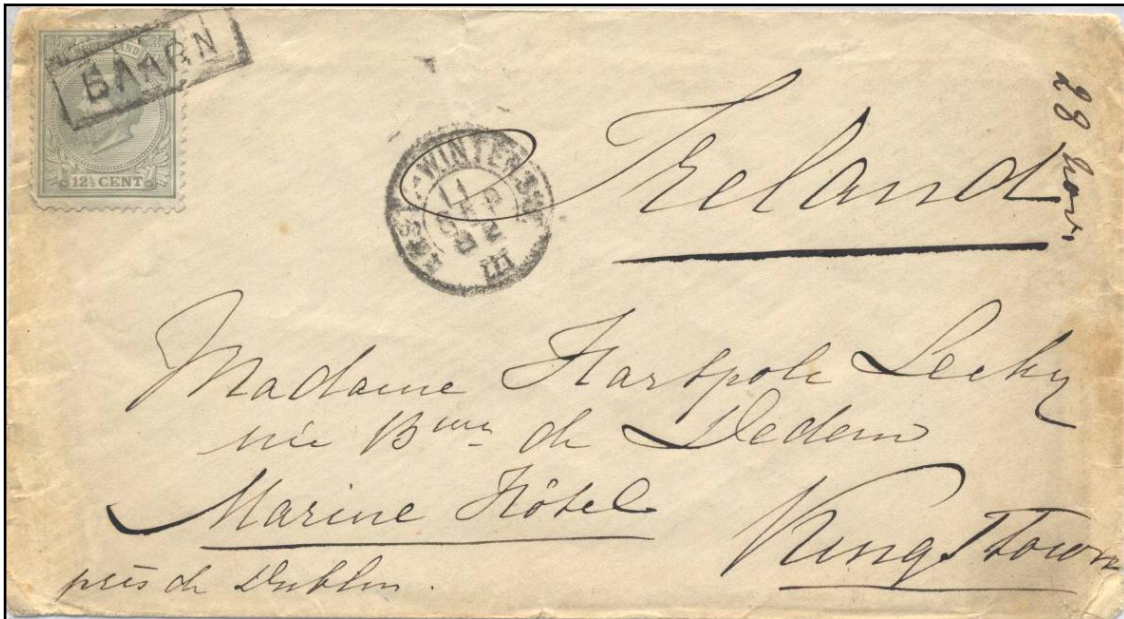 BAARN
12½ CENT
WINTER
III
Ireland
28 Nov.
Madame Hartpole Lecky
née Bnne de Dedem
Marine Hôtel
Kingstown
près de Dublin.